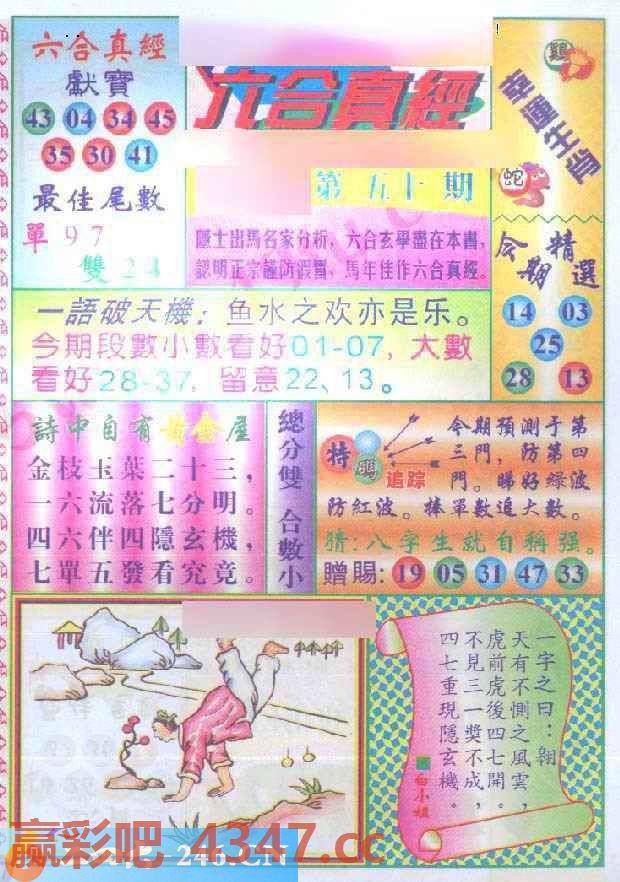 六合真經
獻寶
43 04 34 45
35 30 41
最佳尾數
單97
雙24
六合真經
第五十期
隱士出馬名家分析，六合玄學盡在本書，
認明正宗謹防假冒，馬年佳作六合真經。
幸運生肖
雞
蛇
今期精選
14 03
25
28 13
一語破天機：鱼水之欢亦是乐。
今期段數小數看好01-07，大數
看好28-37，留意22、13。
詩中自有黄金屋
金枝玉葉二十三，
一六流落七分明。
四六伴四隱玄機，
七單五發看究竟。
總分雙 合數小
特碼追踪
今期預測于第
三門，防第四
門。睇好绿波
防紅波。捧單數追大數。
猜：八字生就自稱强。
贈賜：19 05 31 47 33
一字之曰：翱
天有不惻之風雲，
虎前虎後四七開。
不見三一獎不成，
四七重現隱玄機。
白小姐
赢彩吧 4347.cc
246.CN